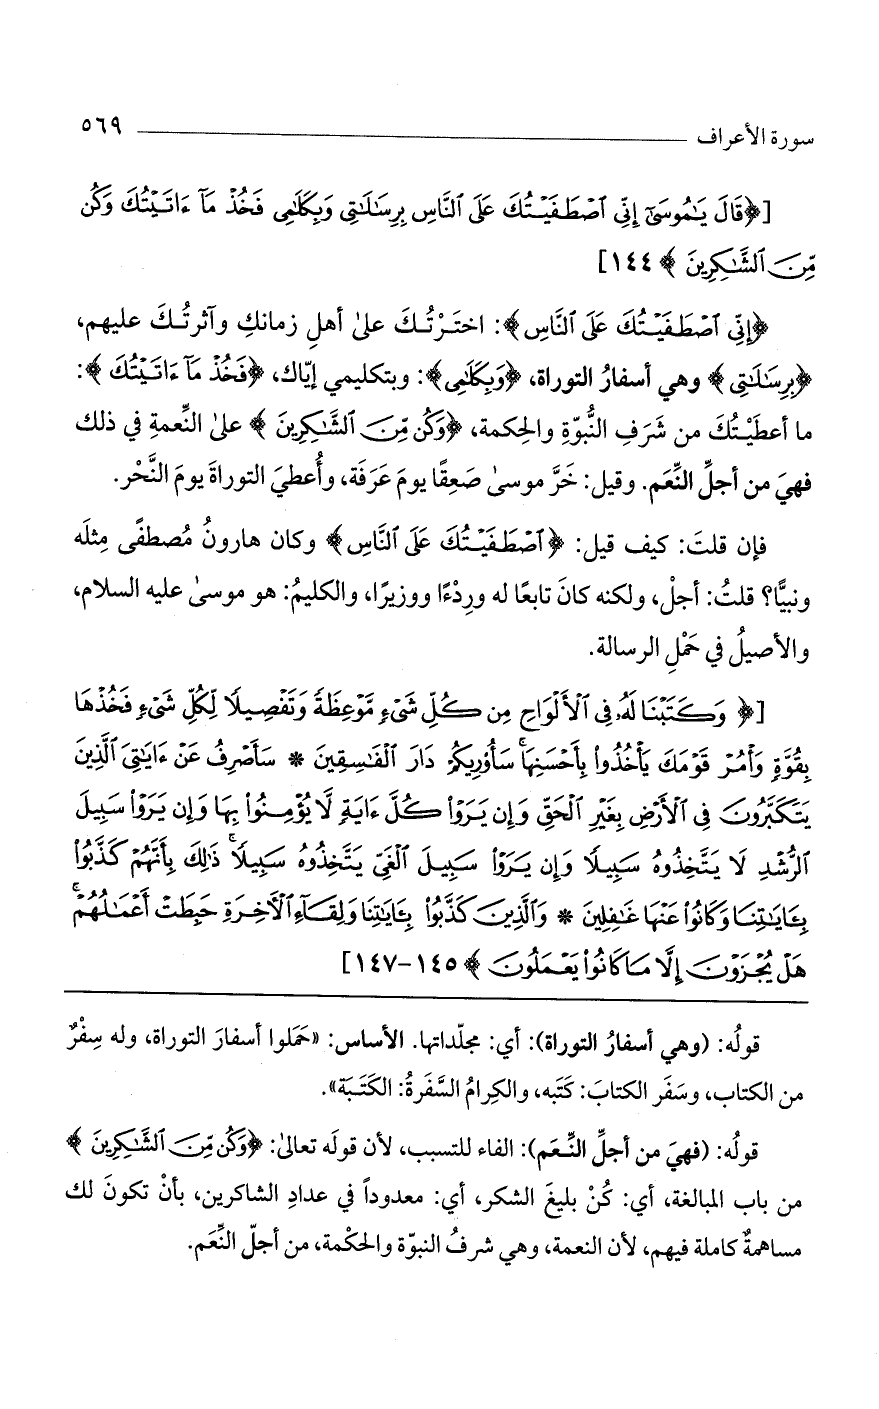 سورة الأعراف ٥٦٩
[﴿قَالَ يَٰمُوسَىٰٓ إِنِّى ٱصْطَفَيْتُكَ عَلَى ٱلنَّاسِ بِرِسَٰلَٰتِى وَبِكَلَٰمِى فَخُذْ مَآ ءَاتَيْتُكَ وَكُن
مِّنَ ٱلشَّٰكِرِينَ﴾ ١٤٤]
﴿إِنِّى ٱصْطَفَيْتُكَ عَلَى ٱلنَّاسِ﴾: اختَرْتُكَ علىٰ أهلِ زمانكِ وآثرتُكَ عليهم،
﴿بِرِسَٰلَٰتِى﴾ وهي أسفارُ التوراة، ﴿وَبِكَلَٰمِى﴾: وبتكليمي إيّاك، ﴿فَخُذْ مَآ ءَاتَيْتُكَ﴾:
ما أعطَيْتُكَ من شَرَفِ النُّبوّةِ والحِكمة، ﴿وَكُن مِّنَ ٱلشَّٰكِرِينَ﴾ علىٰ النِّعمةِ في ذلك
فهيَ من أجلِّ النِّعَم. وقيل: خَرَّ موسىٰ صَعِقًا يومَ عَرَفَة، وأُعطيَ التوراةَ يومَ النَّحْر.
فإن قلتَ: كيف قيل: ﴿ٱصْطَفَيْتُكَ عَلَى ٱلنَّاسِ﴾ وكان هارونُ مُصطفًى مِثلَه
ونبيًّا؟ قلتُ: أجلْ، ولكنه كانَ تابعًا له ورِدْءًا ووزيرًا، والكليمُ: هو موسىٰ عليه السلام،
والأصيلُ في حَمْلِ الرسالة.
[﴿وَكَتَبْنَا لَهُۥ فِى ٱلْأَلْوَاحِ مِن كُلِّ شَىْءٍ مَّوْعِظَةً وَتَفْصِيلًا لِّكُلِّ شَىْءٍ فَخُذْهَا
بِقُوَّةٍ وَأْمُرْ قَوْمَكَ يَأْخُذُوا۟ بِأَحْسَنِهَا ۚ سَأُو۟رِيكُمْ دَارَ ٱلْفَٰسِقِينَ * سَأَصْرِفُ عَنْ ءَايَٰتِىَ ٱلَّذِينَ
يَتَكَبَّرُونَ فِى ٱلْأَرْضِ بِغَيْرِ ٱلْحَقِّ وَإِن يَرَوْا۟ كُلَّ ءَايَةٍ لَّا يُؤْمِنُوا۟ بِهَا وَإِن يَرَوْا۟ سَبِيلَ
ٱلرُّشْدِ لَا يَتَّخِذُوهُ سَبِيلًا وَإِن يَرَوْا۟ سَبِيلَ ٱلْغَىِّ يَتَّخِذُوهُ سَبِيلًا ۚ ذَٰلِكَ بِأَنَّهُمْ كَذَّبُوا۟
بِـَٔايَٰتِنَا وَكَانُوا۟ عَنْهَا غَٰفِلِينَ * وَٱلَّذِينَ كَذَّبُوا۟ بِـَٔايَٰتِنَا وَلِقَآءِ ٱلْءَاخِرَةِ حَبِطَتْ أَعْمَٰلُهُمْ ۚ
هَلْ يُجْزَوْنَ إِلَّا مَا كَانُوا۟ يَعْمَلُونَ﴾ ١٤٥-١٤٧]
قولُه: (وهي أسفارُ التوراة): أي: مجلّداتها. الأساس: «حَمَلوا أسفارَ التوراة، وله سِفْرٌ
من الكتاب، وسَفَر الكتابَ: كَتَبه، والكِرامُ السَّفَرةُ: الكَتَبَة».
قولُه: (فهيَ من أجلِّ النِّعَم): الفاء للتسبب، لأن قولَه تعالىٰ: ﴿وَكُن مِّنَ ٱلشَّٰكِرِينَ﴾
من باب المبالغة، أي: كُنْ بليغَ الشكر، أي: معدوداً في عدادِ الشاكرين، بأنْ تكونَ لك
مساهمةٌ كاملة فيهم، لأن النعمة، وهي شرفُ النبوّة والحكْمة، من أجلّ النِّعَم.